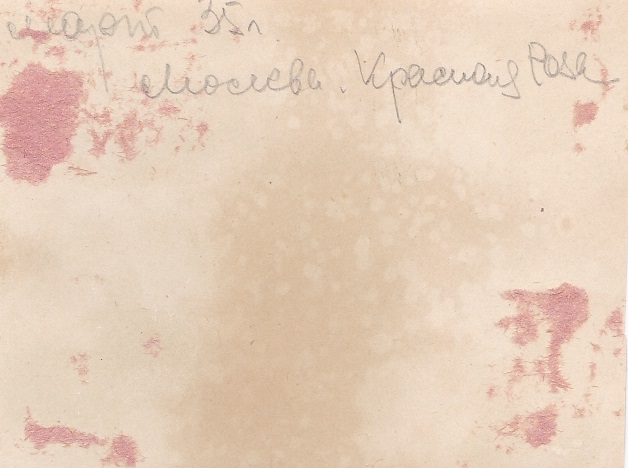 Март 35г
Москва. Красная Роза